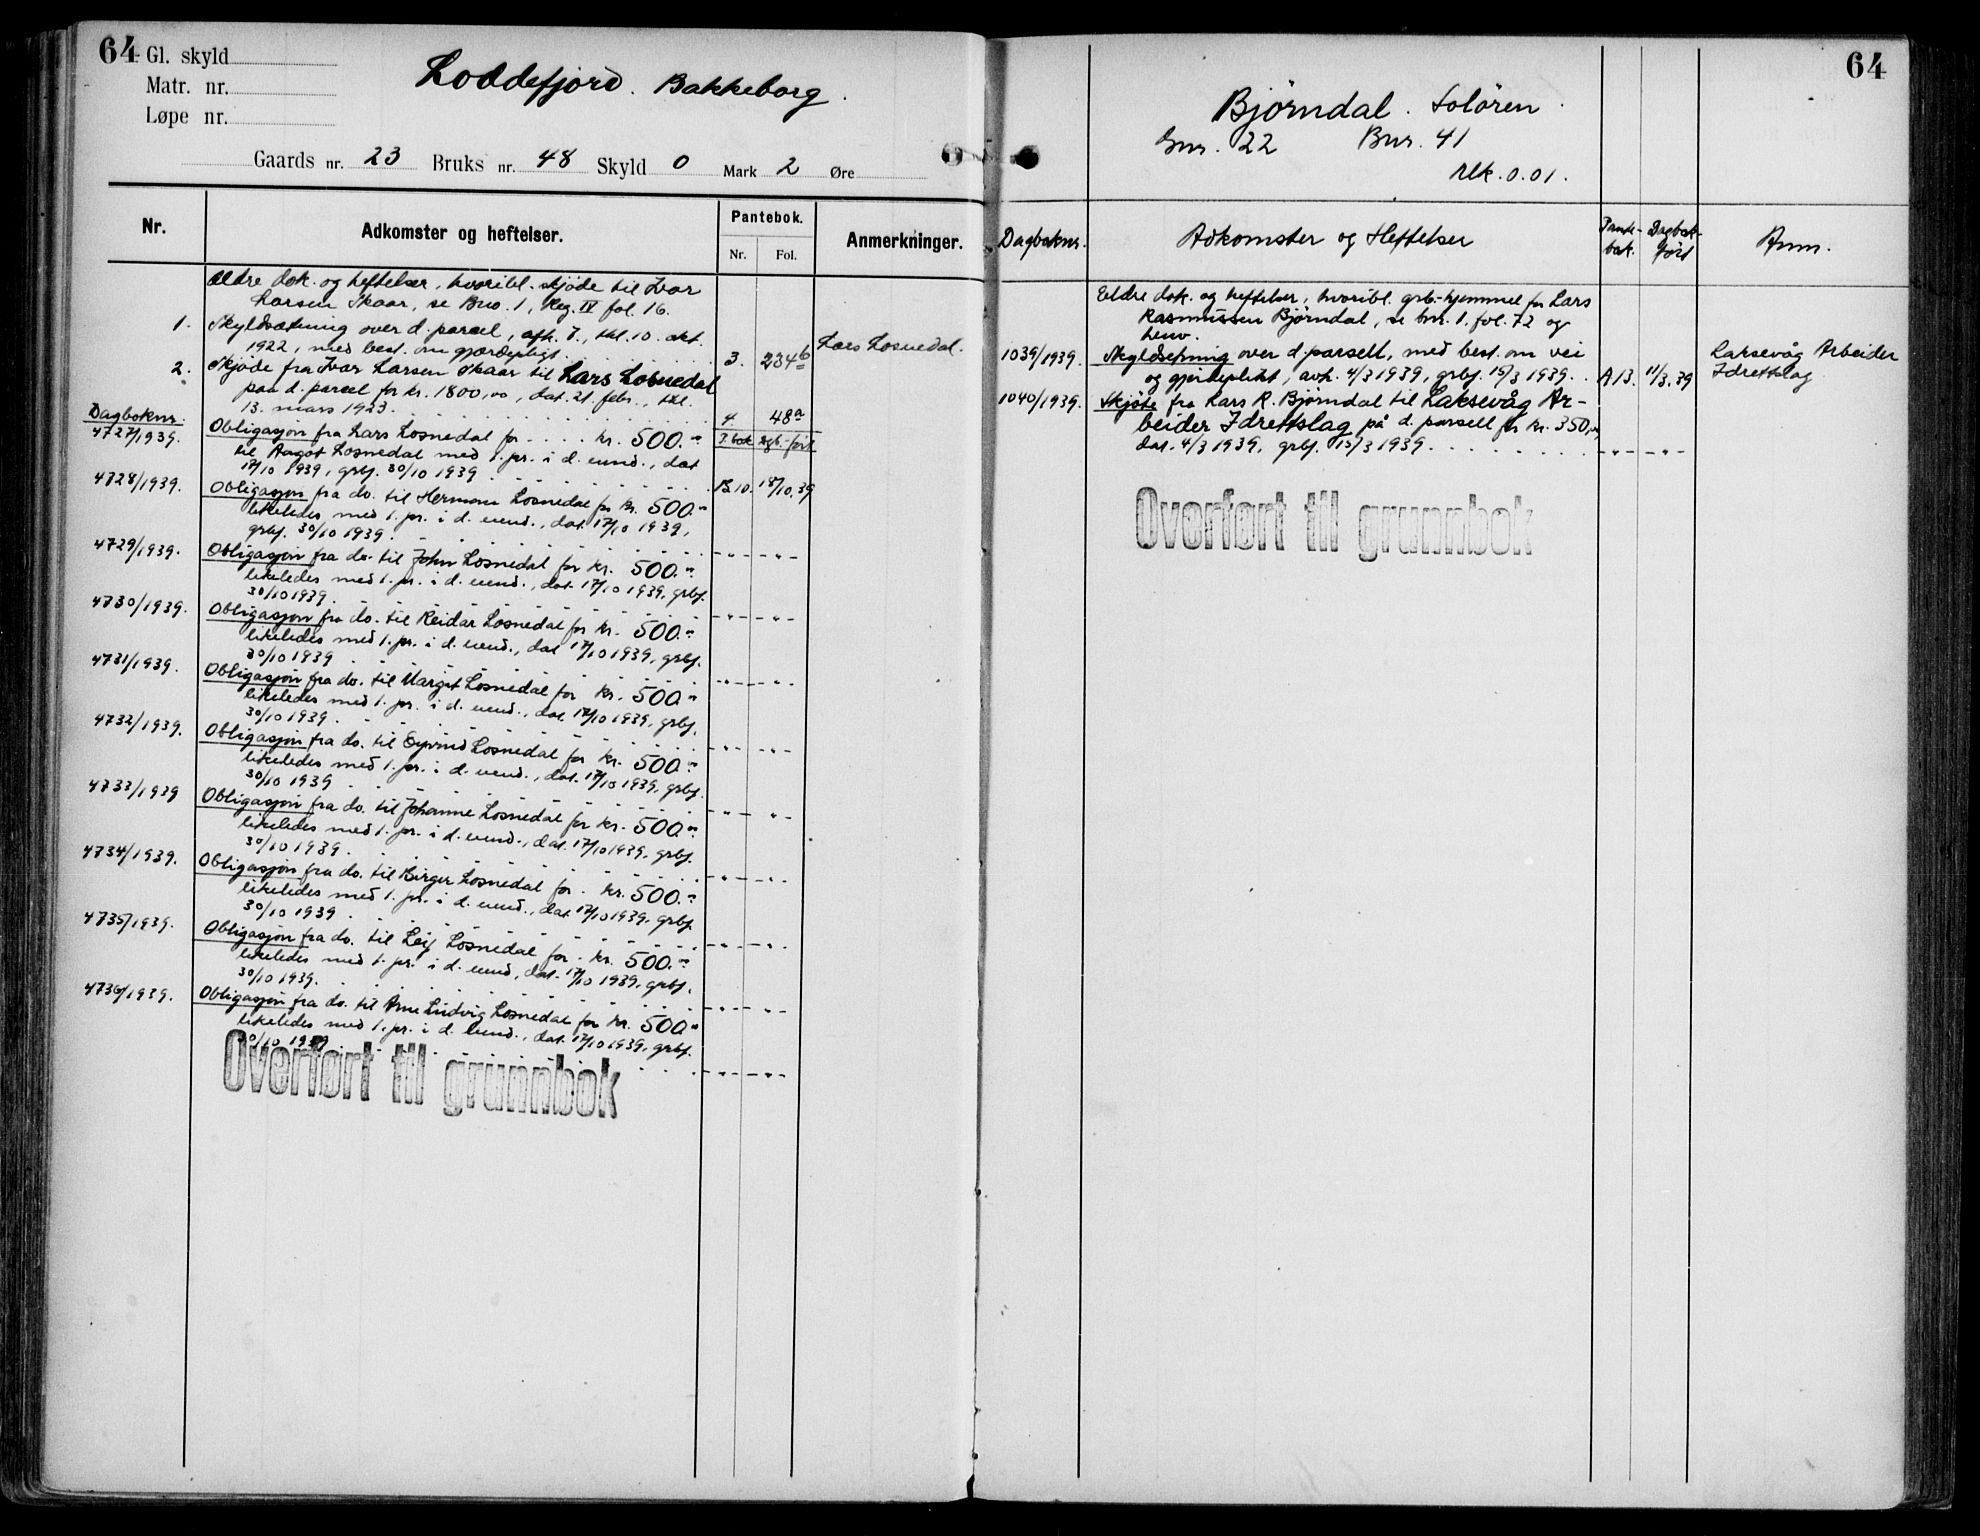 64
Gl. skyld
Matr. nr.
Løpe nr.
Loddefjord. Bakkeborg.
Gaards nr. 23 Bruks nr. 48 Skyld 0 Mark 2 Øre
Nr.
Adkomster og heftelser.
Pantebok.
Nr. Fol.
Anmerkninger.
Ældre dok. og heftelser, hvoribl. skjöde til Ivar
Larsen Skaar, se Brno. 1, Reg. IV fol. 16.
1. Skyldsætning over d. parcel, afh. 7., tkl. 10. okt.
1922, med best. om gjærdepligt. 3. 234b Lars Losnedal.
2. Skjöde fra Ivar Larsen Skaar til Lars Losnedal
paa d. parcel for kr. 1800,00, dat. 21. febr., tkl.
13. mars 1923. 4. 48a
Dagboknr. P.bok dgb.-ført
4727/1939. Obligasjon fra Lars Losnedal for kr. 500.-
til Aagot Losnedal med 1. pr. i d. eiend., dat
17/10 1939, grbf. 30/10 1939 B.10. 18/10.39
4728/1939. Obligasjon fra do. til Herman Losnedal for kr. 500.-
likeledes med 1. pr. i d. eiend., dat. 17/10 1939,
grbf. 30/10 1939. -"- -"-
4729/1939. Obligasjon fra do. til John Losnedal for kr. 500.-
likeledes med 1. pr. i d. eiend., dat. 17/10 1939, grbf.
30/10 1939. -"- -"-
4730/1939. Obligasjon fra do. til Reidar Losnedal for kr. 500.-
likeledes med 1. pr. i d. eiend., dat 17/10 1939, grbf.
30/10 1939 -"- -"-
4731/1939. Obligasjon fra do. til Margit Losnedal for kr. 500.-
likeledes med 1. pr. i d. eiend., dat. 17/10 1939, grbf.
30/10 1939. -"- -"-
4732/1939. Obligasjon fra do. til Öyvind Losnedal for kr. 500.-
likeledes med 1. pr. i d. eiend., dat. 17/10 1939, grbf.
30/10 1939 -"- -"-
4733/1939 Obligasjon fra do. til Johanne Losnedal for kr. 500.-
likeledes med 1. pr. i d. eiend., dat. 17/10 1939, grbf.
30/10 1939. -"- -"-
4734/1939. Obligasjon fra do. til Birger Losnedal for kr. 500.-
likeledes med 1. pr. i d. eiend., dat. 17/10 1939, grbf.
30/10 1939. -"- -"-
4735/1939. Obligasjon fra do. til Leif Losnedal for kr. 500.-
likeledes med 1. pr. i d. eiend, dat. 17/10 1939, grbf.
30/10 1939. -"- -"-
4736/1939. Obligasjon fra do. til Arne Ludvig Losnedal for kr. 500.-
likeledes med 1. pr. i d. eiend., dat. 17/10 1939, grbf.
30/10 1939 -"- -"-
Overført til grunnbok
64
Bjørndal. Solören.
Gnr. 22 Bnr. 41
rlk. 0.01.
Dagboknr. Adkomster og Heftelser Pante-bok. Dagbok-ført Anm.
Eldre dok. og heftelser, hvoribl. grb.-hjemmel for Lars
Rasmussen Björndal, se bnr. 1. fol. 72 og
henv.
1039/1939. Skyldsetning over d. parsell, med best. om vei Laksevåg Arbeider
og gjerdeplikt, avh. 4/3 1939, grbf. 15/3 1939. A 13. 11/3.39 Idrettslag
1040/1939. Skjøte fra Lars R. Björndal til Laksevåg Ar-
beider Idrettslag på d. parsell for kr. 350,00
dat. 4/3 1939, grbf. 15/3 1939. -"- -"-
Overført til grunnbok